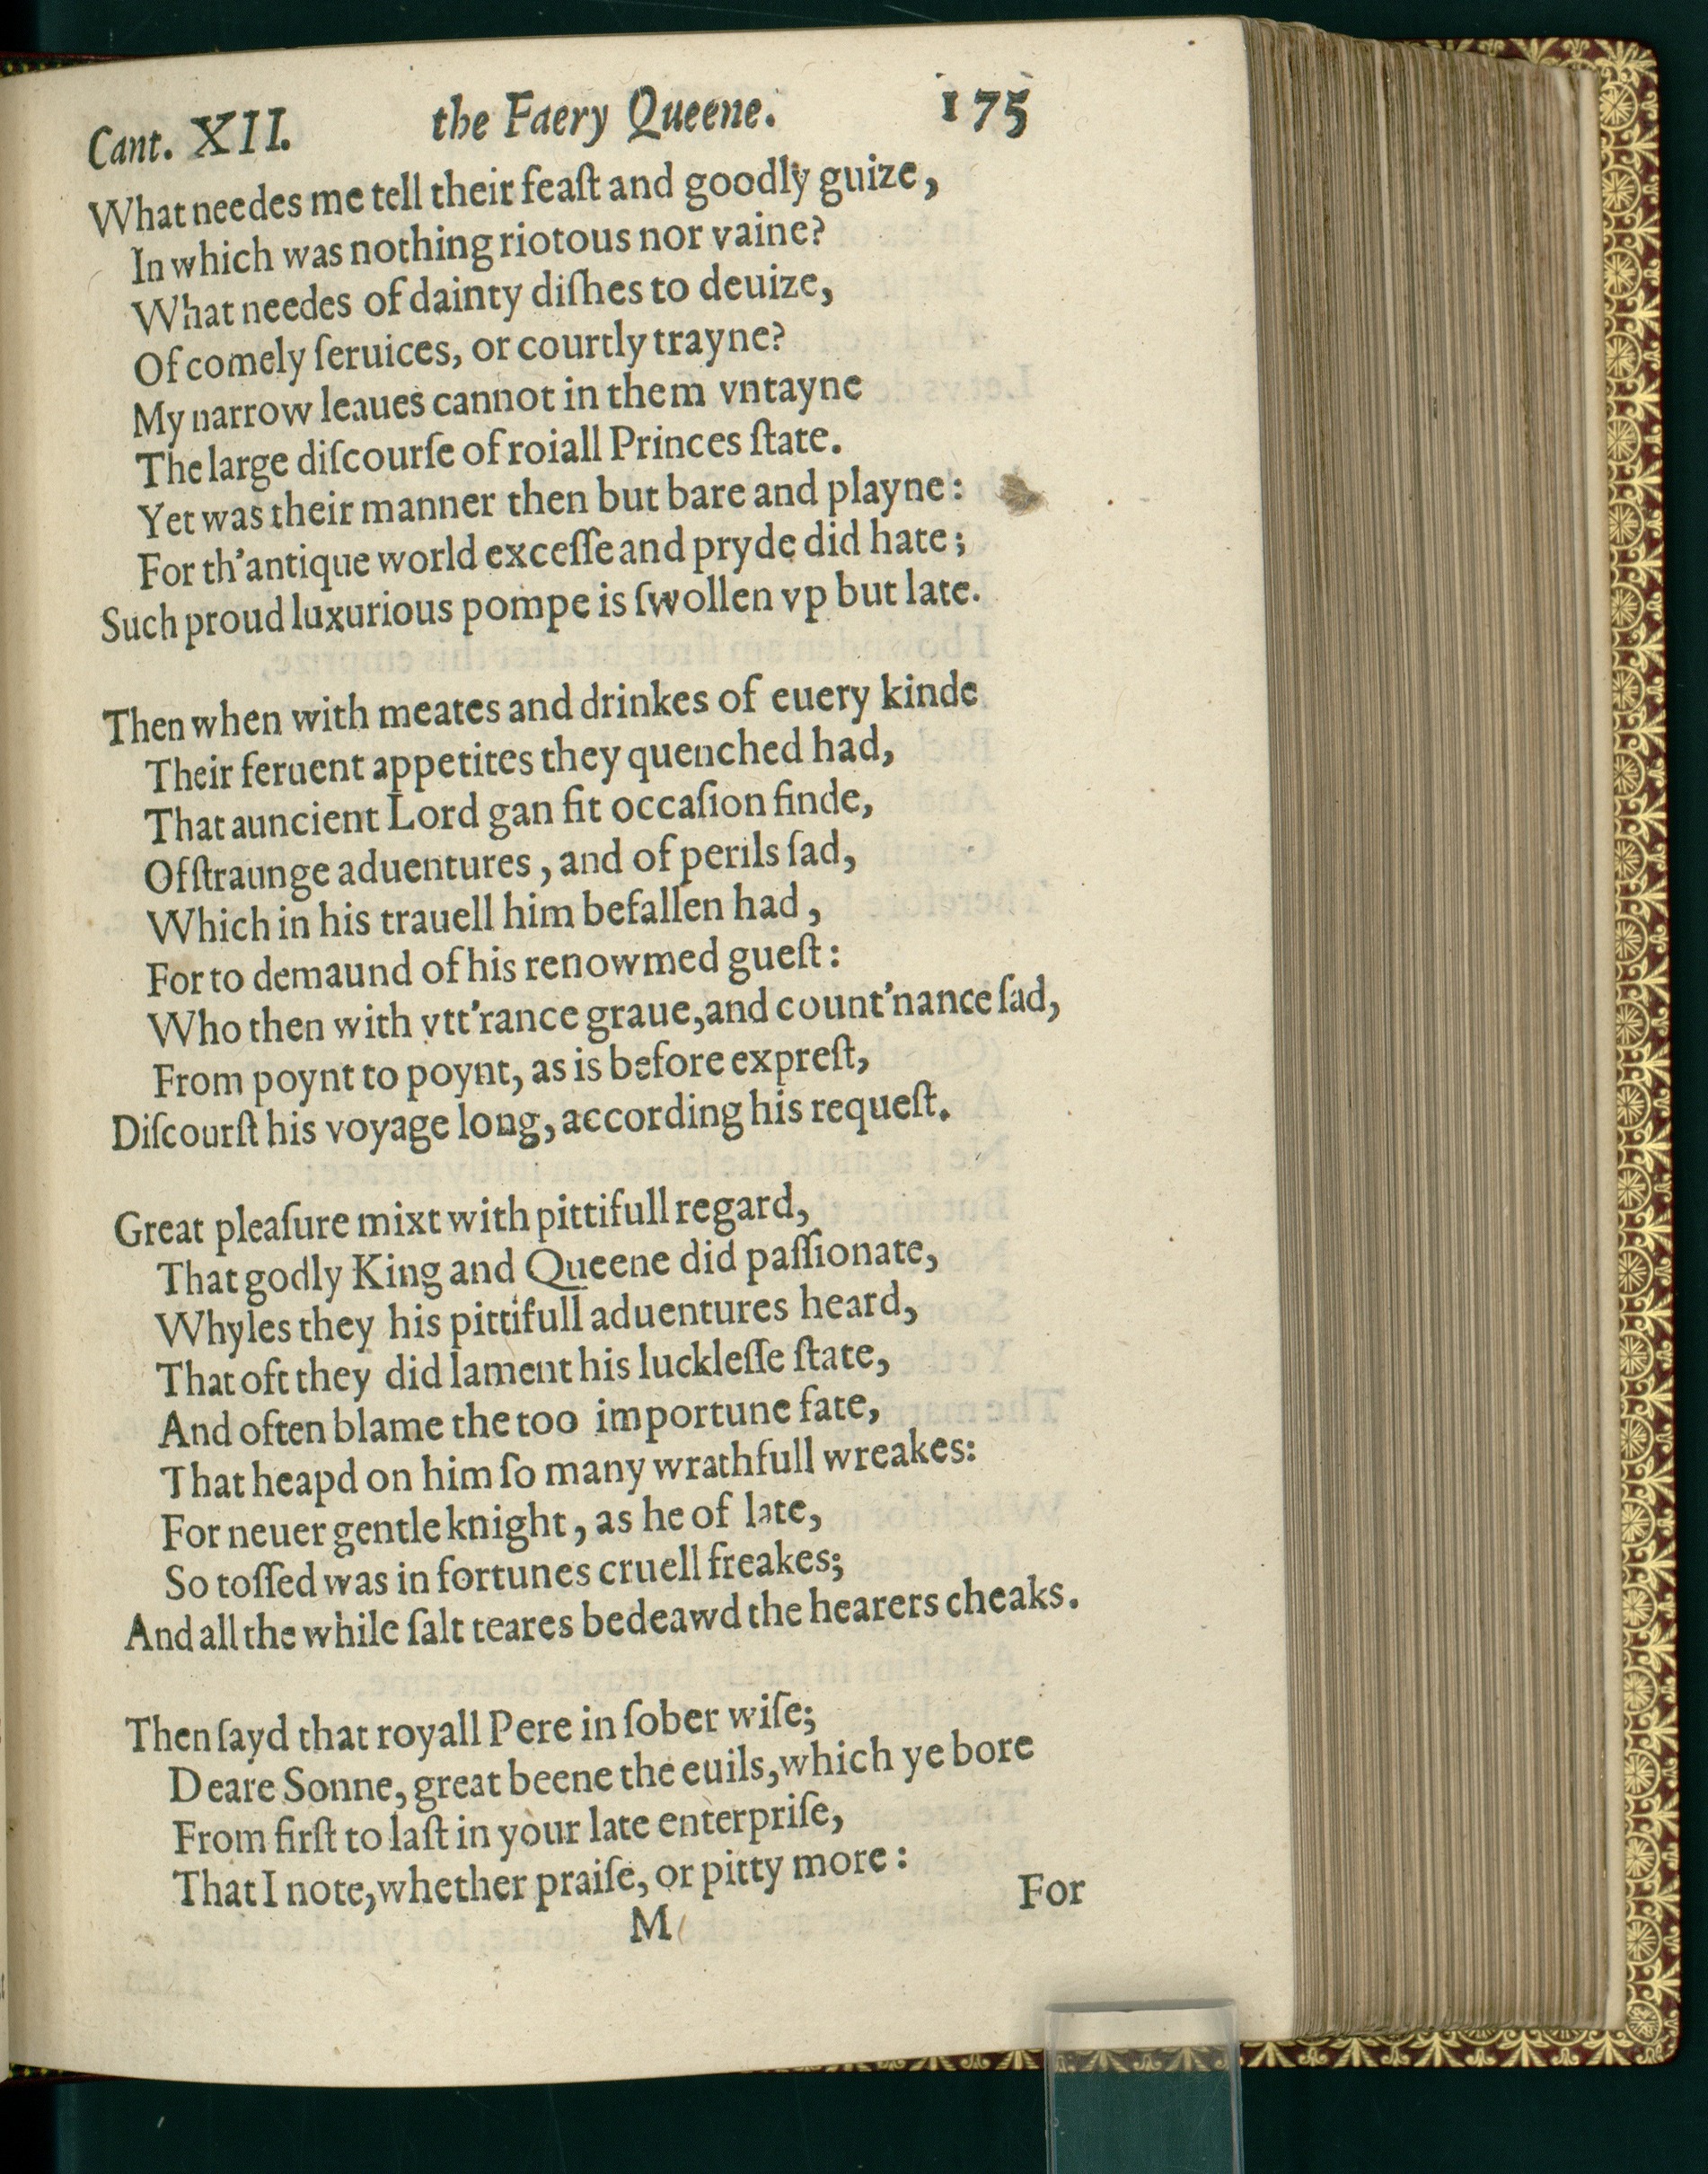 Cant. XII. the Faery Queene. 175
What needes me tell their feaſt and goodly guize,
In which was nothing riotous nor vaine?
What needes of dainty diſhes to deuize,
Of comely ſeruices, or courtly trayne?
My narrow leaues cannot in them vntayne
The large diſcourſe of roiall Princes ſtate.
Yet was their manner then but bare and playne:
For th'antique world exceſſe and pryde did hate;
Such proud luxurious pompe is ſwollen vp but late.
Then when with meates and drinkes of euery kinde
Their feruent appetites they quenched had,
That auncient Lord gan fit occaſion finde,
Of ſtraunge aduentures, and of perils ſad,
Which in his trauell him befallen had,
For to demaund of his renowmed gueſt:
Who then with vtt'rance graue, and count'nance ſad,
From poynt to poynt, as is before expreſt,
Diſcourſt his voyage long, according his requeſt.
Great pleaſure mixt with pittifull regard,
That godly King and Queene did paſſionate,
Whyles they his pittifull aduentures heard,
That oft they did lament his luckleſſe ſtate,
And often blame the too importune fate,
That heapd on him ſo many wrathfull wreakes:
For neuer gentle knight, as he of late,
So toſſed was in fortunes cruell freakes;
And all the while ſalt teares bedeawd the hearers cheaks.
Then ſayd that royall Pere in ſober wiſe;
Deare Sonne, great beene the euils, which ye bore
From firſt to laſt in your late enterpriſe,
That I note, whether praiſe, or pitty more:
M For